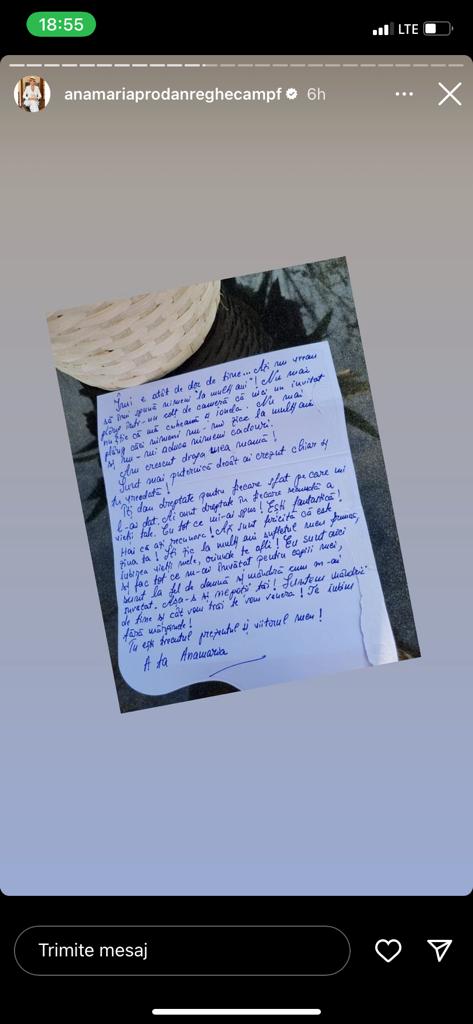 18:55
LTE
anamariaprodanreghecampf 6h
Îmi e atât de dor de tine... Aș nu vreau
să îmi spună nimeni "la mulți ani"! Nu mai
plâng într-un colț de cameră că nici un invitat
nu știe că mă cheamă și Ionela. Nu mai
plâng căci nimeni nu-mi zice la mulți ani
și nu-mi aduce nimeni cadouri.
Am crescut draga mea mamă!
Sunt mai puternică decât ai crezut chiar și
tu vreodată!
Îți dau dreptate pentru fiecare sfat pe care mi
l-ai dat. Ai avut dreptate în fiecare secundă a
vieții tale. Cu tot ce mi-ai spus! Ești fantastică!
Hai că azi recunosc! Aș sunt fericită că este
ziua ta! Îți zic la mulți ani sufletul meu frumos,
iubirea vieții mele, oriunde te afli! Eu sunt aici
și fac tot ce m-ai învățat pentru copiii mei,
sunt la fel de damnă și mândră cum m-ai
învățat. Asa-s și nepoții tăi! Suntem mândrii
de tine și cât vom trăi te vom venera! Te iubim
fără mărginire!
Tu ești trecutul prezentul și viitorul meu!
A ta Anamaria
Trimite mesaj